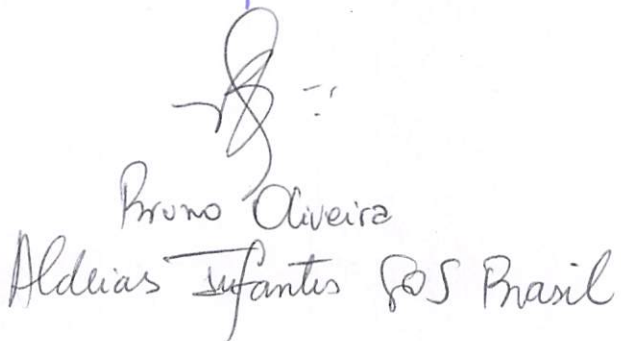 Bruno Oliveira
Aldeias Infantis SOS Brasil